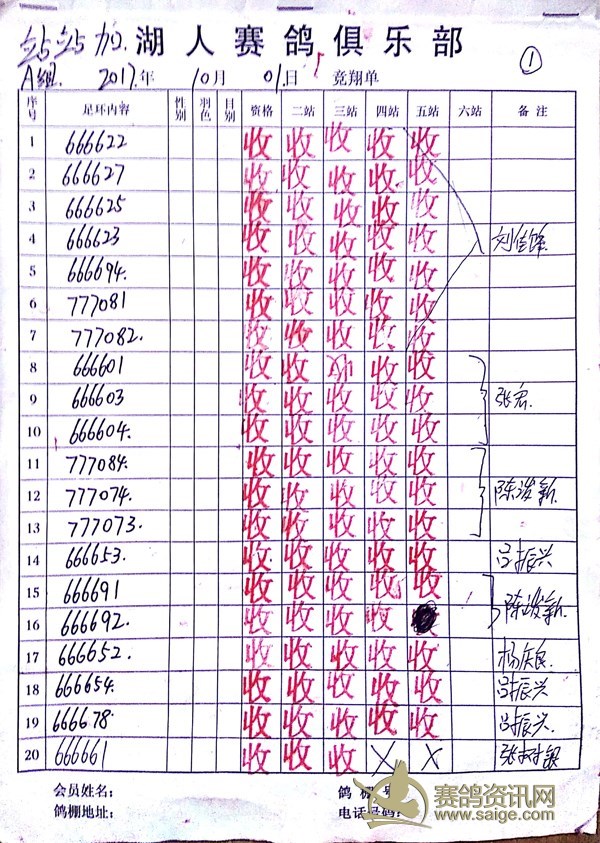 站站加 湖人赛鸽俱乐部 ①
A组 2017年 10月 01日 竞翔单
序号 足环内容 性别 羽色 目别 资格 二站 三站 四站 五站 六站 备注
1 666622 收 收 收 收 收
2 666627 收 收 收 收 收
3 666625 收 收 收 收 收
4 666623 收 收 收 收 收
5 666694. 收 收 收 收 收
6 777081 收 收 收 收 收
7 777082. 收 收 收 收 收
8 666601 收 收 收 收
9 666603 收 收 收 收 收 张宏.
10 666604. 收 收 收 收 收
11 777084. 收 收 收 收 收
12 777074. 收 收 收 收 收 陈浚新.
13 777073. 收 收 收 收 收
14 666653. 收 收 收 收 收 吕振兴
15 666691 收 收 收 收 收 陈浚新.
16 666692. 收 收 收 收
17 666652. 收 收 收 收 收 杨庆良
18 666654. 收 收 收 收 收 吕振兴
19 666678. 收 收 收 收 收 吕振兴.
20 666661 收 收 收 X X 张树银
会员姓名: 鸽棚号:
鸽棚地址: 电话号码:
赛鸽资讯网
www.saige.com